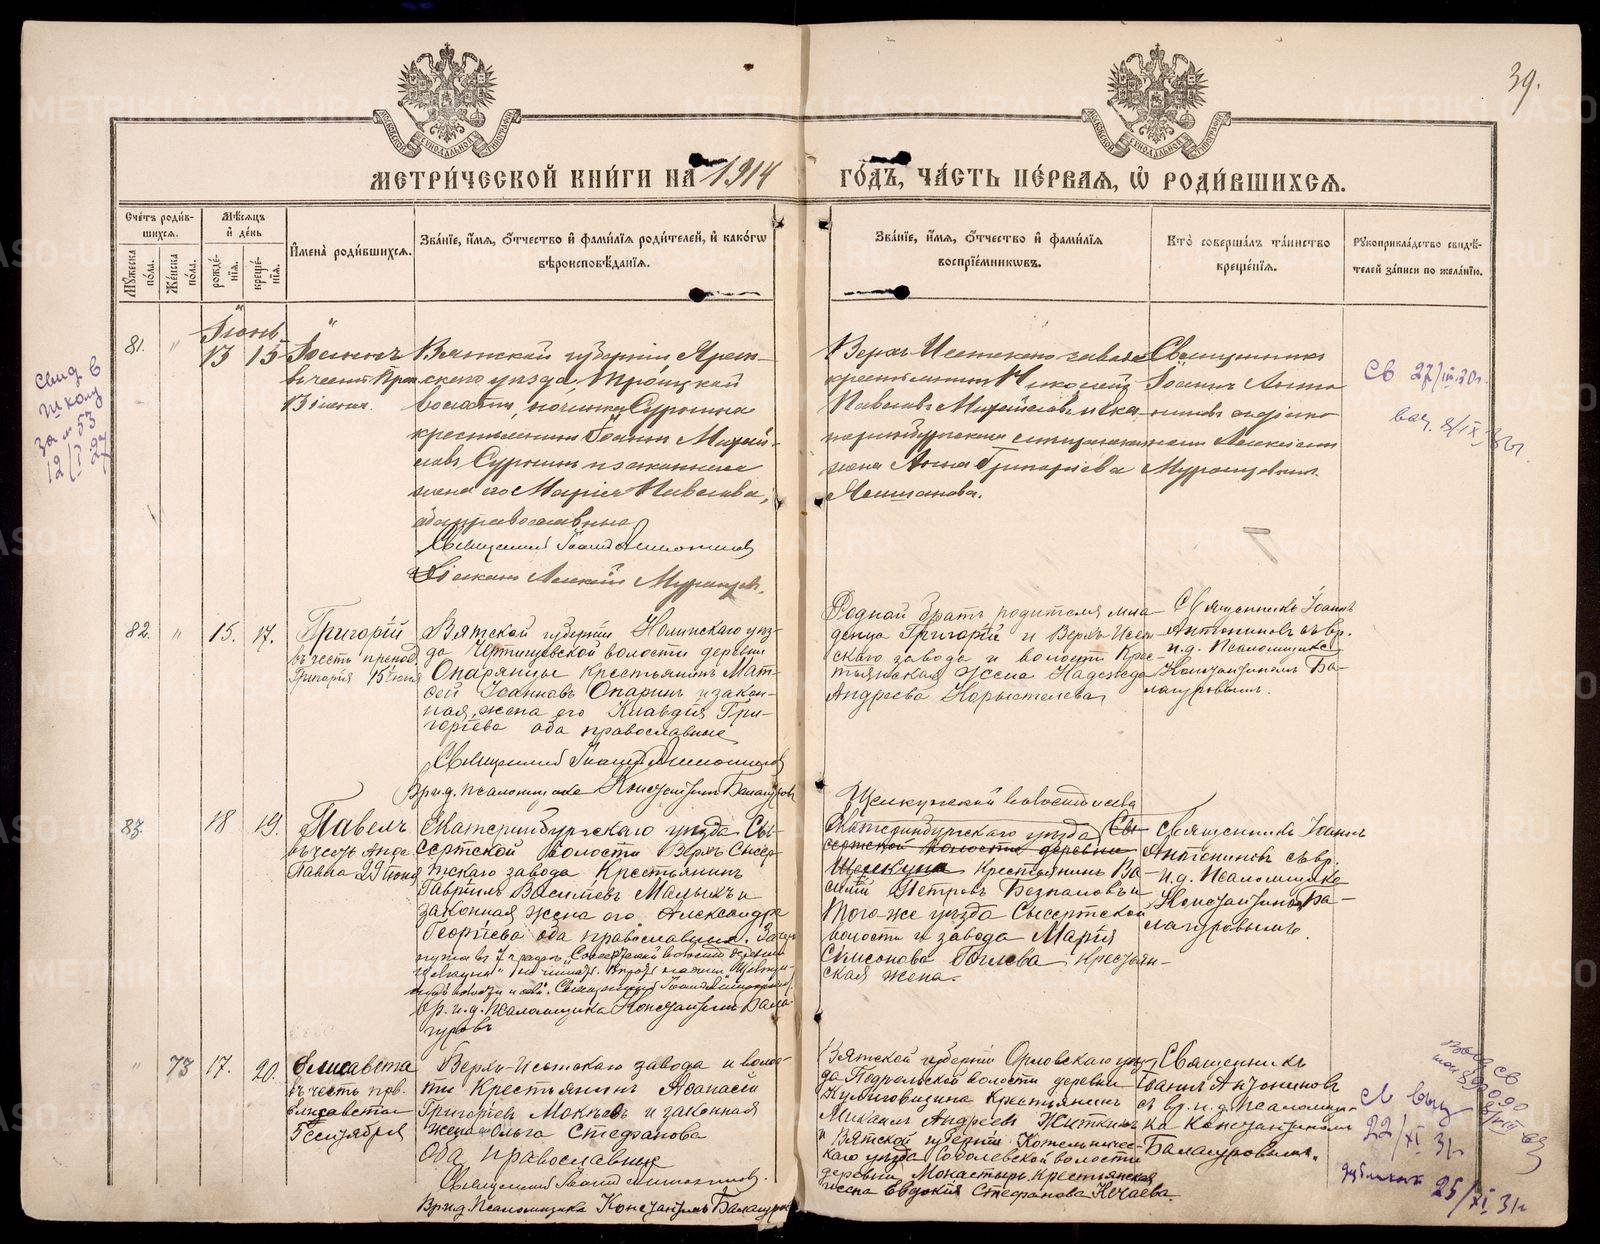 39.
МЕТРИ́ЧЕСКОЙ КНИ́ГИ НА 1914 ГО́ДЪ, ЧА́СТЬ ПЕ́РВАѦ, Ѡ҆ РОДИ́ВШИХСѦ.
Сче́тъ роди́в-
шихсѧ.
Мѣ́сѧцъ
и҆ де́нь
И҆мена̀ роди́вшихсѧ.
Зва́нїе, и҆́мѧ, ѻ҆́тчество и҆ фами́лїѧ роди́телей, и҆ како́гѡ
вѣроисповѣ́данїѧ.
Зва́нїе, и҆́мѧ, ѻ҆́тчество и҆ фами́лїѧ
воспрїе́мникѡвъ.
Кто̀ соверша́лъ та́инство
креще́нїѧ.
Рꙋкоприкла́дство свидѣ́-
телей за́писи по жела́нїю.
Мꙋ́жеска
по́ла.
Же́нска
по́ла.
рожде́-
нїѧ.
креще́-
нїѧ.
Іюнь
81. " 13 15
Іоаннъ
13 іюня.
Вятской губерніи Яран-
скаго уѣзда, Троицкой
волости, починка Сурнина
крестьянинъ Іоаннъ Михай-
ловъ Сурнинъ и законная
жена его Марія Павлова,
оба православные
Священникъ Іоаннъ Антониновъ
Діаконъ Алексій Мурашевъ
Верхъ-Исетскаго завода
крестьянинъ Николай
Павловъ Михайловъ и Ека-
теринбургская мѣщанская
жена Анна Григоріева
Священникъ
Іоаннъ Анто-
ниновъ съ діако-
номъ Алексіемъ
Св 27/III 30г.
Свид в
школу
за № 53
12/I 27
82. " 15. 17.
Григорій
въ честь препод.
Григорія 15 іюня
Вятской губерніи Нолинскаго уѣз-
да Чертищевской волости деревни
Опарянцы крестьянинъ Мат-
ѳей Іоанновъ Опаринъ и закон-
ная жена его Клавдія Гри-
горіева оба православные
Священникъ Іоаннъ Антониновъ
Вр.и.д. псаломщика Константинъ Балагуровъ
Родной братъ родителя мла-
денца Григорій и Верхъ-Исет-
скаго завода и волости Крес-
тьянская жена Надежда
Андреева Корыстелева
Священникъ Іоаннъ
Антониновъ съ вр.
и.д. Псаломщика
Константиномъ Ба-
лагуровымъ.
83. 18 19.
Павелъ
въ честь Апос.
Павла 29 іюня
Екатеринбургскаго уѣзда Сы-
сертской волости Верхъ Сысер-
тскаго завода Крестьянинъ
Гавріилъ Васильевъ Мальхъ и
законная жена его Александра
Георгіева оба православные. Зачер-
Священникъ Іоаннъ Антониновъ
Вр. и.д. Псаломщика Константинъ Бала-
гуровъ
Щелкунской волости и села
Екатеринбургскаго уѣзда Сы-
сертской волости деревни
Щелкуна крестьянинъ Ва-
силій Петровъ Безпаловъ и
Того-же уѣзда Сысертской
волости и завода Марія
Симсонова крестьян-
ская жена.
Священникъ Іоаннъ
Антониновъ съ вр.
и.д. Псаломщика
Константиномъ Ба-
лагуровымъ.
" 73 17. 20.
Елисавета
въ честь прав.
Елисаветы
5 сентября
Верхъ-Исетскаго завода и волос-
ти Крестьянинъ Аѳанасій
Григорьевъ Мокѣевъ и законная
жена Ольга Стефанова
Оба православные
Священникъ Іоаннъ Антониновъ.
Вр.и.д. Псаломщика Константинъ Балагуровъ
Вятской губерніи Орловскаго уѣз-
да Подрельской волости деревни
Кулиговщина Крестьянинъ
Михаилъ Андреевъ Житкихъ
и Вятской губерніи Котельничес-
каго уѣзда Соболевской волости
деревни Монастырь крестьянская
жена Евдокія Стефанова Нечаева
Священникъ
Іоаннъ Антониновъ
съ вр.и.д. псаломщи-
ка Константиномъ
Балагуровымъ.
22/XI 31г
дубликат 25/XI 31г